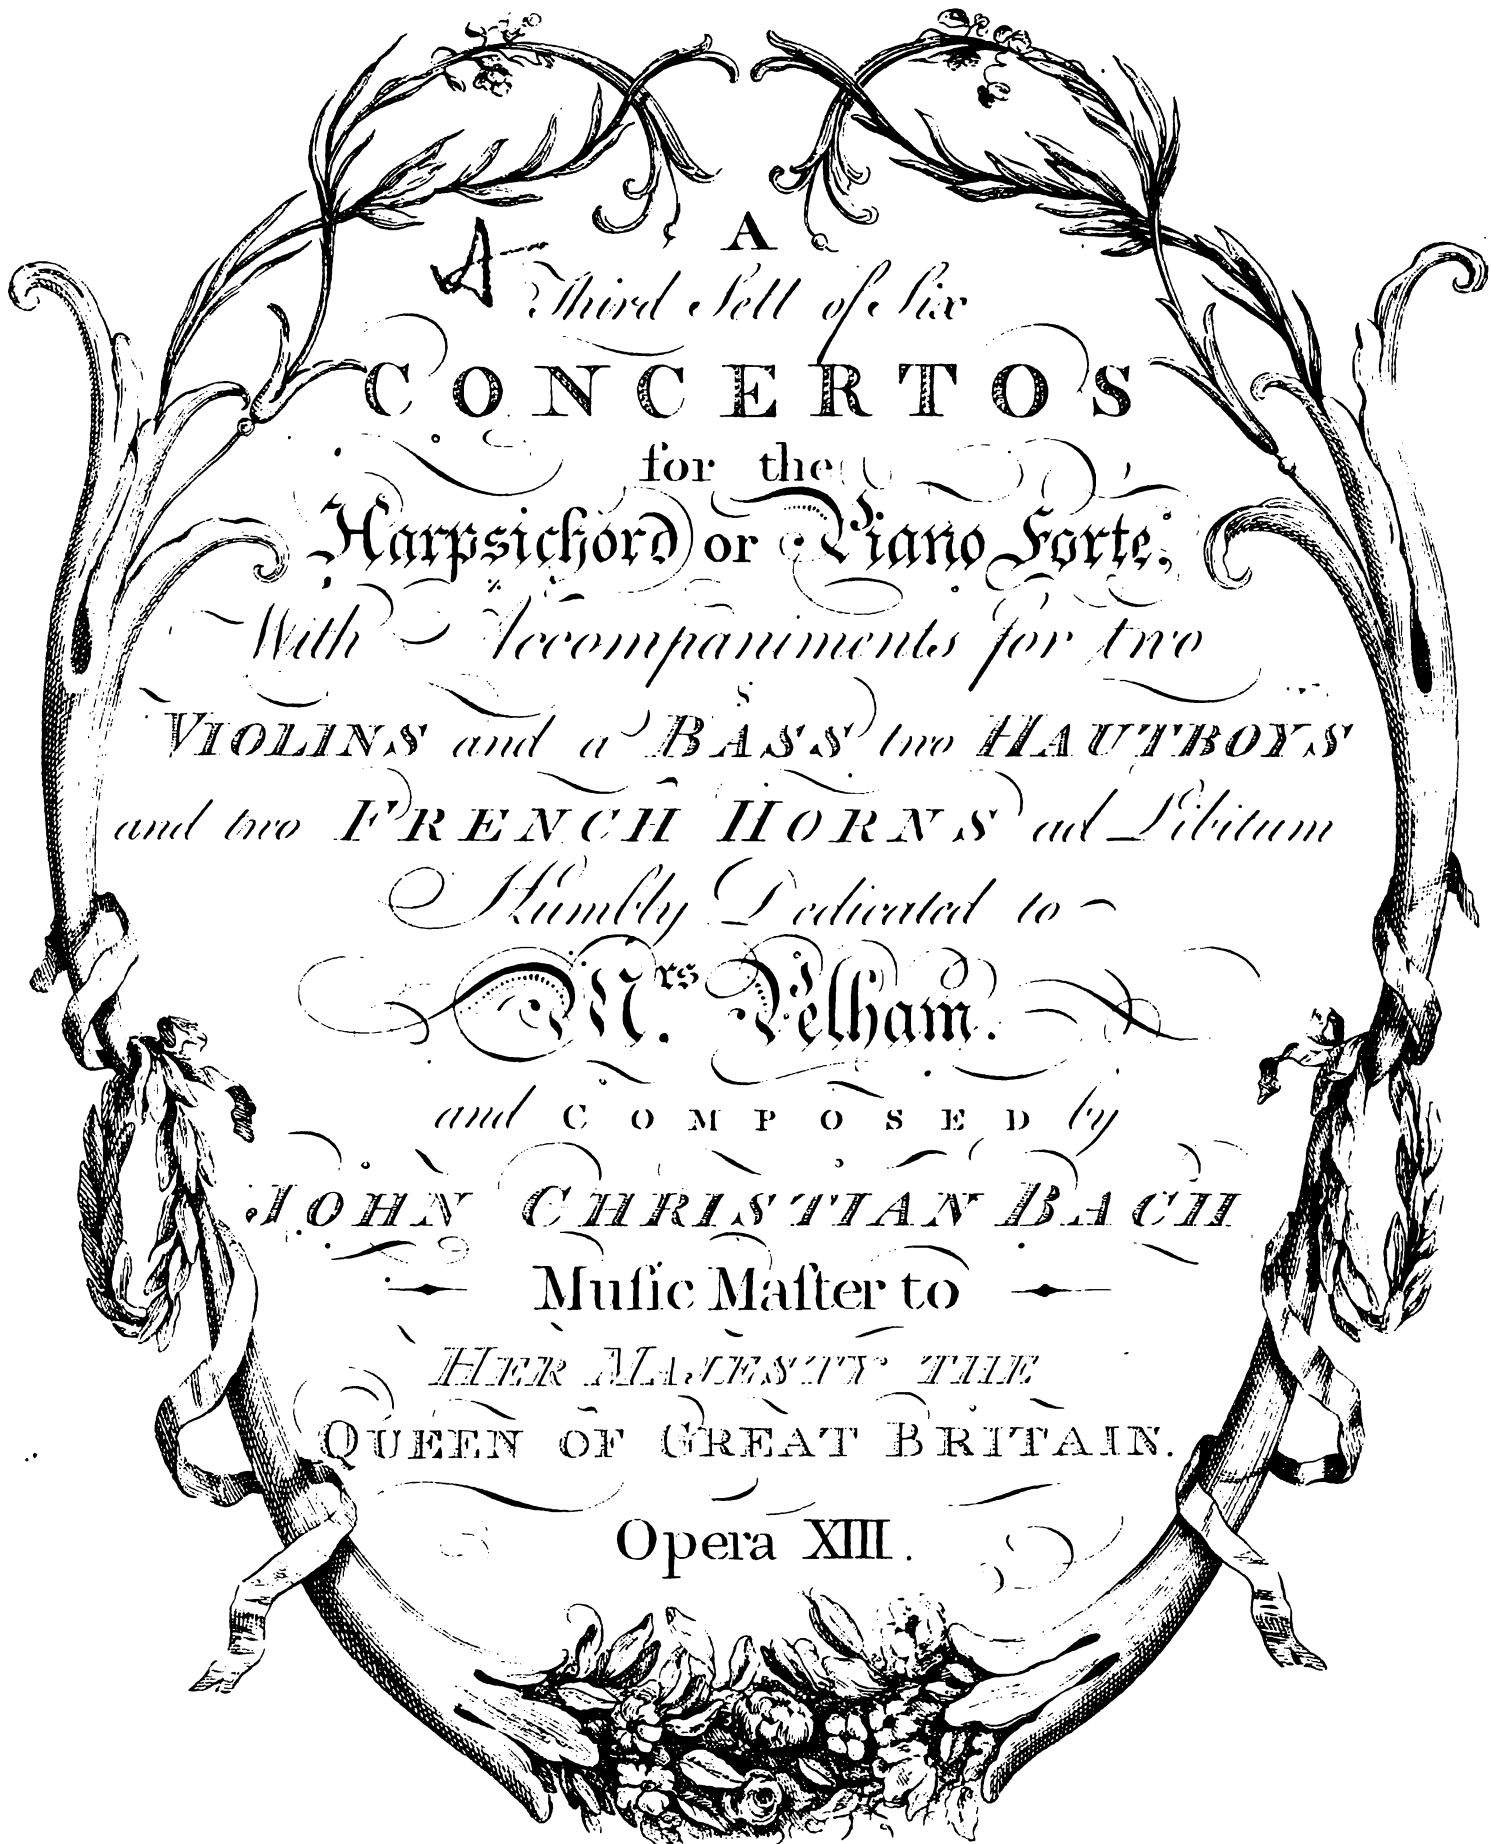 A
A
Third Sett of Six
CONCERTOS
for the
Harpsichord or Piano Forte.
With Accompaniments for two
VIOLINS and a BASS two HAUTBOYS
and two FRENCH HORNS ad Libitum
Humbly Dedicated to
Mrs. Pelham.
and COMPOSED by
JOHN CHRISTIAN BACH
Muſic Maſter to
HER MAJESTY THE
QUEEN OF GREAT BRITAIN.
Opera XIII.